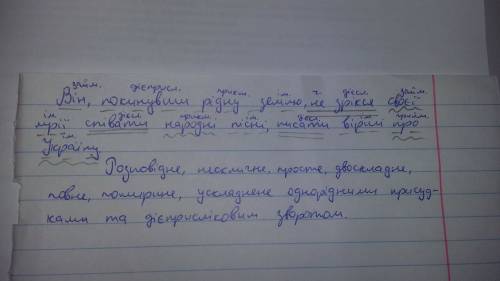 займ. дієприсл. прикм. ім. ч. дієсл. займ.
Він, покинувши рідну землю, не зрікся своєї
ім. дієсл. прикм. ім. дієсл. ім. прийм.
мрії співати народні пісні, писати вірші про
ім.
Україну.
Розповідне, неокличне, просте, двоскладне,
повне, поширине, ускладнене однорідними присуд-
ками та дієприслівковим зворотом.